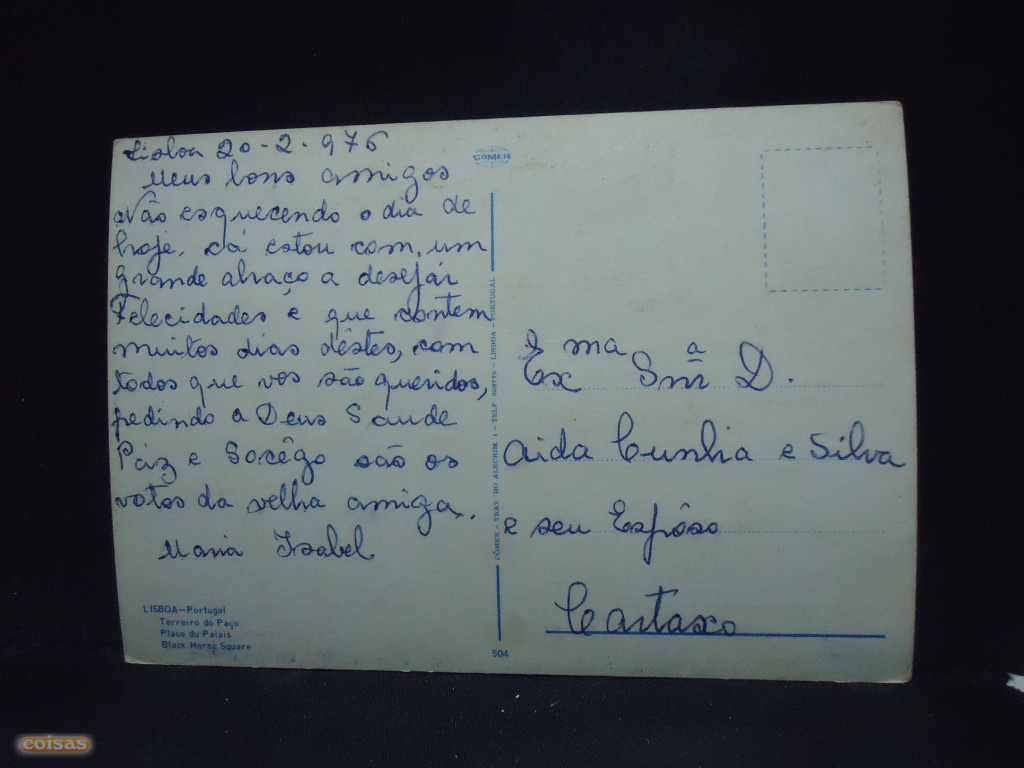 Lisboa 20-2-976
Meus bons amigos
Não esquecendo o dia de
hoje, cá estou com um
grande abraço a desejár
Felecidades e que contem
muitos dias dêstes, com
todos que vos são queridos,
pedindo a Deus Saude
Páz e Socêgo são os
votos da velha amiga.
Maria Isabel
LISBOA—Portugal
Terreiro do Paço
Place du Palais
Black Horse Square
COMER
CÔMER - TRAV. DO ALECRIM, 1 - TELF. - LISBOA - PORTUGAL
504
Ex ma Snr a D.
Aida Cunha e Silva
e seu Espôso
Cartaxo
coisas